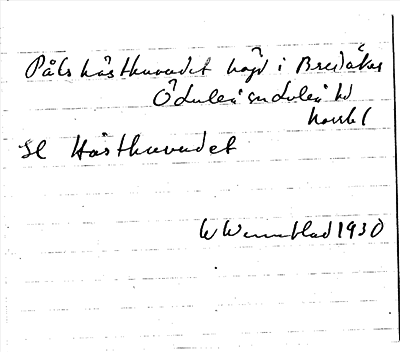 Påls hästhuvudet höjd i Bredåker
ÖLuleå sn Luleå td
Norrb l
se Hästhuvudet
W Wennblad 1930